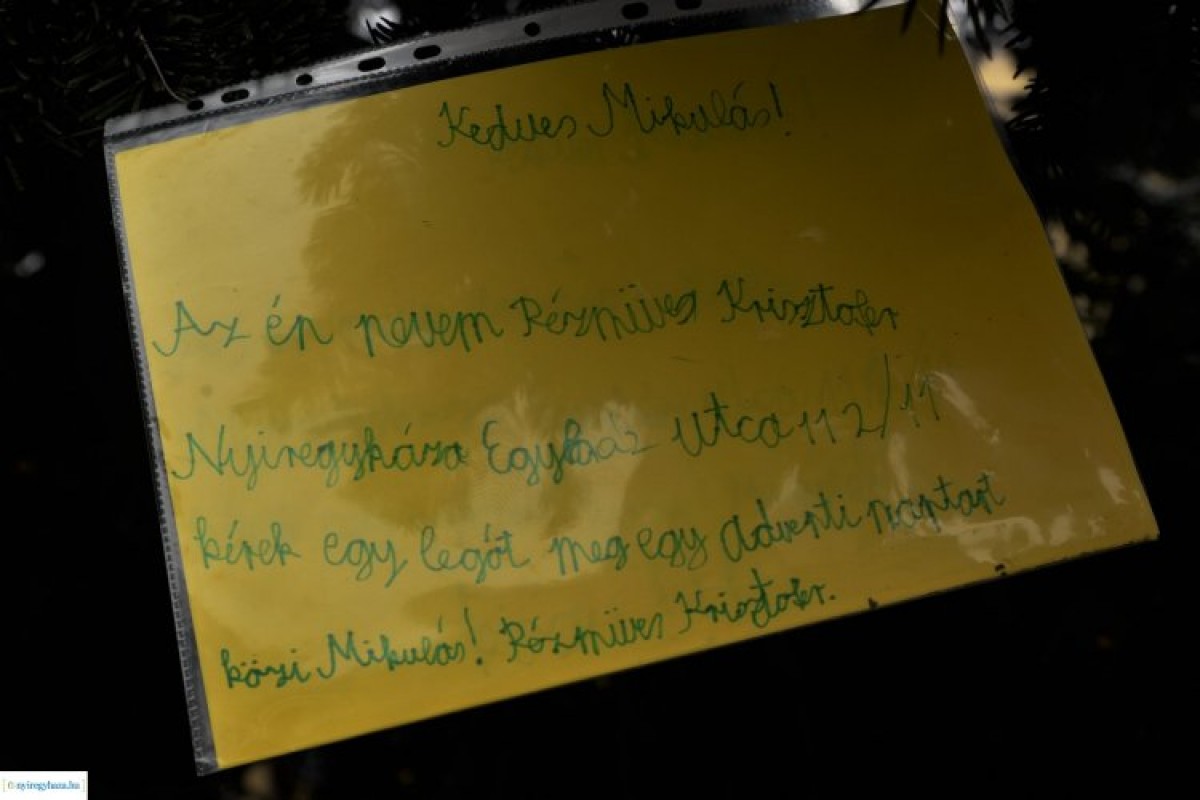 Kedves Mikulás!
Az én nevem Rézmüves Krisztofer
Nyiregyháza Egyház utca 112/11
kérek egy legót meg egy adventi nartart
közi Mikulás! Rézmüves Krisztofer.
© nyiregyhaza.hu